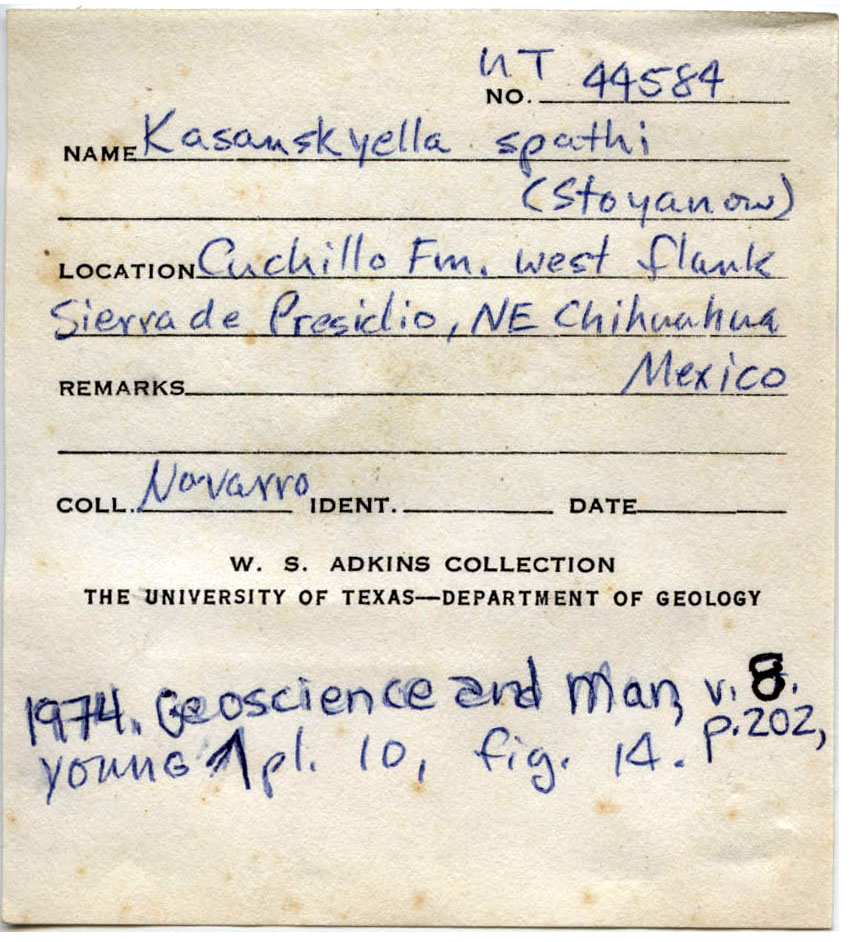 UT
NO. 44584
NAME Kasanskyella spathi
(Stoyanow)
LOCATION Cuchillo Fm. west flank
Sierra de Presidio, NE Chihuahua
Mexico
REMARKS
COLL. Navarro IDENT. DATE
W. S. ADKINS COLLECTION
THE UNIVERSITY OF TEXAS—DEPARTMENT OF GEOLOGY
1974. Geoscience and Man, v. 8.
p. 202,
YOUNG pl. 10, fig. 14.